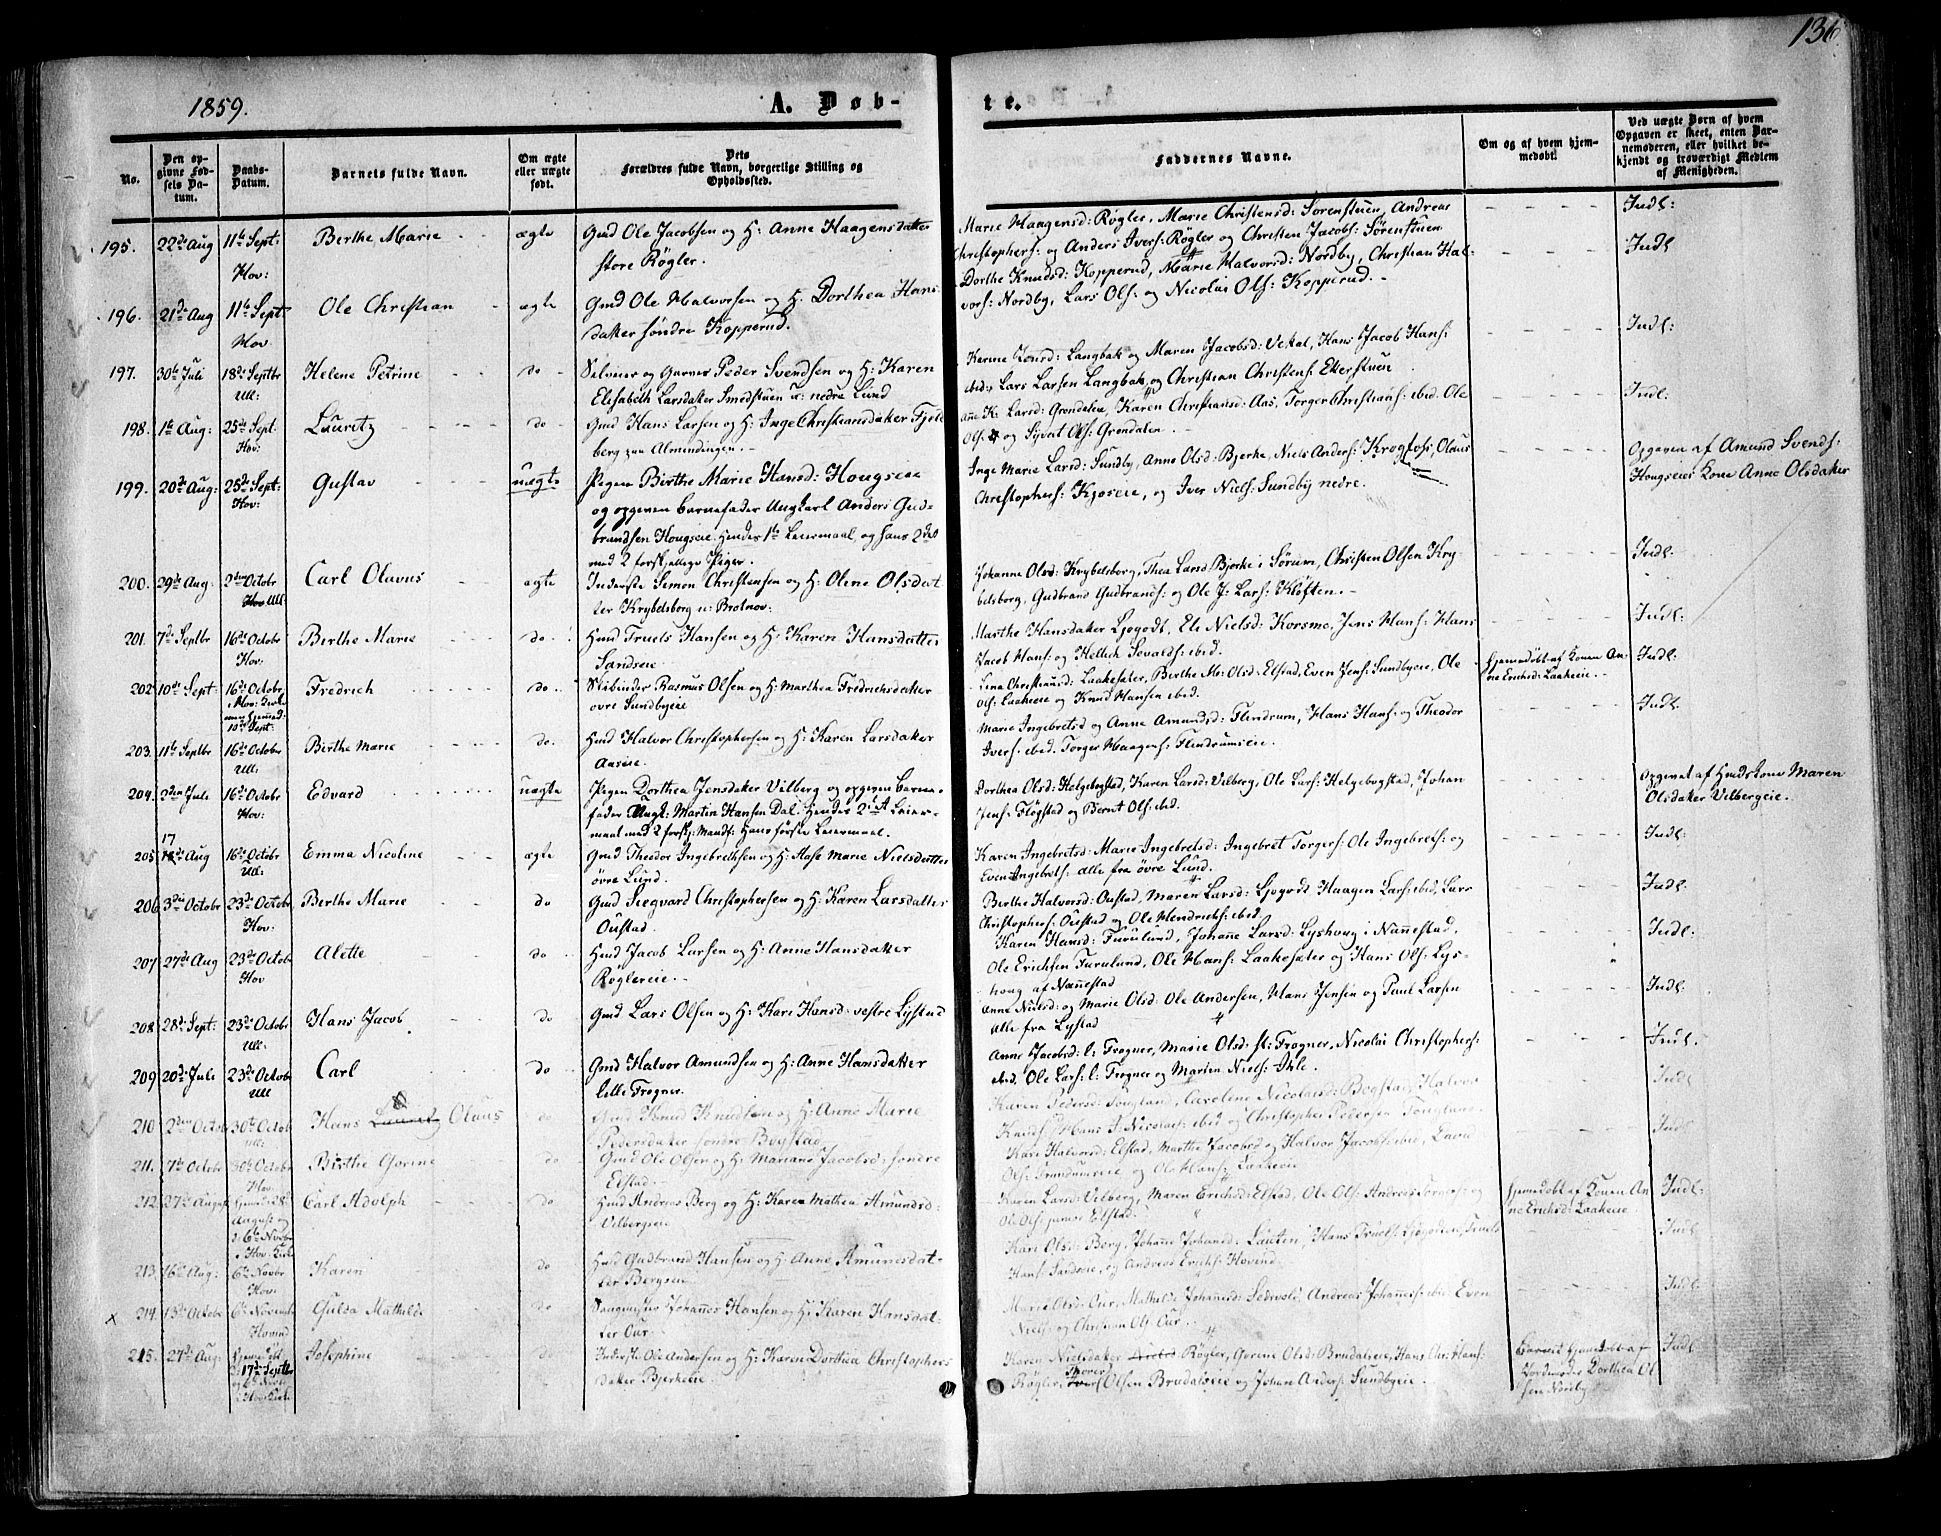 136
1859.
A. Døb-
te.
No.
Den op-
givne Fød-
sels Da-
tum.
Daabs-
Datum.
Barnets fulde Navn.
Om ægte
eller uægte
født.
Dets
Forældres fulde Navn, borgerlige Stilling og
Opholdssted.
Faddernes Navne.
Om og af hvem hjem-
medøbt?
Ved uægte Børn af hvem
Opgaven er skeet, enten Bar-
nemoderen, eller hvilket be-
kjendt og troværdigt Medlem
af Menigheden.
195. 22de Aug 11te Sept: Birthe Marie ægte Gmd Ole Jacobsen og H: Anne Haagensdatter
Hov: store Røgler.
Marie Haagensd: Røgler, Marie Christensd: Sørenstuen, Andreas
Christophers: og Anders Ivers: Røgler og Christen Jacobs: Sørenstuen
Indl:
196. 21de Aug 11te Sept Ole Christian ægte Gmd Ole Halvorsen og H: Dorthea Hans
Hov datter søndre Kopperud.
Dorthe Knudsd: Kopperud, Marie Halvorsd: Nordby, Christian Hal-
vors: Nordby, Lars Ols: og Nicolai Ols: Kopperud.
Indl
197. 30te Juli 18de Septbr Helene Petrine do Peder Svendsen og H: Karen
Ull: Elisabeth Larsdatter Smedstuen u: nedre Lund
Karine Langbak og Maren Jacobsd: Hans Jacob Hans:
ibid: Lars Larsen Langbak og Christian Christens: Ekerstuen
Indl:
198. 1te Aug: 25de Sept: Lauritz do Gmd Hans Larsen og H: Inge Christiansdatter Fjeld-
Hov: berg paa Almindingen.
Anne K: Larsd: Grøndalen, Karen Christiansd: Aas, Torger Christians: ibid. Ole
Ols: og Syvert Ols: Grøndalen.
Indl:
199. 20de Aug: 25de Sept: Gustav uægte Pigen Birthe Marie Hansd: Hougseie
Hov: og opgiven Barnefader Ungkarl Anders Gud-
brandsen Hougseie. Hendes 1te Leiermaal, og hans 2det
med 2 forskjellige Piger.
Inge Marie Larsd: Sundby, Anne Olsd: Bjerke, Niels Anders: Krogfoss, Olaus
Christophers: Kjoseie, og Iver Niels: Sundby nedre.
Opgaven af Amund Svends:
Hougseies Kone Anne Olsdatter
200. 29de Aug: 2den Octobr Carl Olavus ægte Inderste Simon Christensen og H: Oline Olsdat-
Hov Ull: ter Krybelsborg u: Brotnov:
Johanne Olsd: Krybelsborg, Thea Larsd Bjerke i Sørum, Christen Olsen Kry-
belsborg, Gudbrand Gudbrands: og Ole J: Lars: Kløften.
Indl:
201. 7de Septbr 16de Octobr Birthe Marie do Hmd Truels Hansen og H: Karen Hansdatter
Hov: Sandseie
Marthe Hansdatter Ljøgodt, Eli Nielsd: Korsmo, Jens Hans: Hans
Jacob Hans: og Hellick Sevalds: ibid.
Indl:
202 10de Sept 16de Octobr Fredrich do Skibinder Rasmus Olsen og H: Marthea Fredrichsdatter
Hov: øvre Sundbyeie
10de Sept:
Lina Christiansd: Laakesæter, Birthe Ma: Olsd: Elstad, Even Jens: Sundbyeie, Ole
Ols: Laakeeie og Knud Hansen ibid.
Hjemmedøbt af Konen An-
ne Erichsd: Laakeeie.
Indl:
203. 11te Septbr 16de Octobr Birthe Marie do. Hmd Halvor Christophersen og H: Karen Larsdatter
Ull: Aaseie.
Marie Ingebretsd og Anne Amundsd: Flendrum, Hans Hans: og Theodor
Ivers: ibid. Torger Haagens: Flendrumseie.
Indl.
204. 2den Juli 16de Octobr Edvard uægte Pigen Dorthea Jensdatter Vilberg og opgiven Barne-
Hov: fader Ungk: Martin Hansen Dal. Hendes 2det Leier-
maal med 2 forskj: Mandf: Hans første Leiermaal.
Dorthea Olsd: Helgebostad, Karen Larsd: Vilberg, Ole Lars: Helgebostad, Johan
Jens: Flogstad og Bernt Ols: ibid.
Opgivet af Hmds Kone Maren
Olsdatter Vilbergeie.
17
205 Aug 16de Octobr Emma Nicoline ægte Gmd Theodor Ingebrethsen og H: Aase Marie Nielsdatter
Ull: øvre Lund.
Karen Ingebretsd: Marie Ingebretsd: Ingebret Torgers: Ole Ingebrets: og
Even Ingebrets: alle fra øvre Lund.
Indl:
206 3die Octobr 23de Octobr Birthe Marie do Gmd Seegvard Christophersen og H: Karen Larsdatter
Hov: Oustad.
Birthe Halvorsd: Oustad, Maren Larsd: Ljøgodt Haagen Lars: ibid, Lars
Christophers: Oustad og Ole Hendrichs: ibid.
Indl:
207 27de Aug 23de Octobr Alette do Hmd Jacob Larsen og H: Anne Hansdatter
Hov Røglereie.
Karen Hansd: Furulund, Johanne Larsd: Lyshoug i Nannestad,
Ole Erichsen Furulund, Ole Hans: Laakesæter og Hans Ols: Lys-
houg af Nannestad
Indl:
208. 28de Sept: 23de Octobr Hans Jacob do Gmd Lars Olsen og H: Kari Hansd: vestre Lystad
Ull:
Anne Nielsd: og Marie Olsd: Ole Andersen, Hans Jensen og Paul Larsen
alle fra Lystad
Indl:
209 20de Juli 23de Octobr Carl do Gmd Halvor Amundsen og H: Anne Hansdatter
Ull lille Frogner.
Anne Jacobsd: l: Frogner, Marie Olsd: st: Frogner, Nicolai Christophers:
ibid, Ole Lars: l: Frogner og Marten Niels: Ihle.
Indl.
210 2den Octobr 30te Octobr Hans Lauritz Olaus do Gmd Knud Knudsen og H: Anne Marie
Ull: Pedersdatter søndre Bogstad
Karen Pedersd: Tougland, Caroline Nicolaisd: Bogstad, Halvor
Knuds: Hans J: Nicolais: ibid og Christopher Pedersen Tougland.
Indl
211. 7de Octobr 30te Octobr Birthe Gorine do Gmd Ole Olsen og H: Mariane Jacobsd: søndre
Hov: Elstad.
Kari Halvorsd: Elstad, Marthe Jacobsd og Halvor Jacobs: ibid,
Ols: og Ole Hans: Laakeeie
Indl
212. 27de August Hjemmed: 28de Carl Adolph do Hmd Andreas Berg og H: Karen Mathea Amundsd:
August og Vilbergeie
i 6te Novbr
i Hov: Kirke
Karen Larsd: Vilberg, Maren Erichsd: Elstad, Ole Ols: Andreas Torgers: og
Ole Ols: Elstad.
Hjemmedøbt af Konen An-
ne Erichsd: Laakeeie
Indl:
213. 16de Aug: 6te Novbr Karen do Hmd Gudbrand Hansen og H: Anne Amundsdat-
Hov: ter Bergseie
Kari Olsd: Berg, Johanne Johansd: Lauten, Hans Truels: Ljøgodtei, Truels
Hans: Sandseie, og Andreas Erichs: Hovind.
Indl
x 214. 13de Octobr 6te Novembr Gulda Mathilde do Johannes Hansen og H: Karen Hansdat-
Hovind ter Cur.
Marie Olsd: Cur, Mathilde Johannesd: Andreas Johannes: ibid Even
Niels: og Christian Ols: Cur.
Indl
215. 27de Aug: Hjemmedøbt Josephine do Inderste Ole Andersen og H: Karen Dorthea Christophers
17de Septbr datter Bjerkeeie
og 6te Novbr
i Hov: Kirke
Karen Nielsdatter Røgler, Gorine Olsd: Brudalseie, Hans Chr: Hans:
Røgler, Thorer Olsen Brudalseie og Johan Anders: Sundbyeie.
Barnet hjemmedøbt af
Jordemoder Dorthea Ol-
sen Nordby
Indl